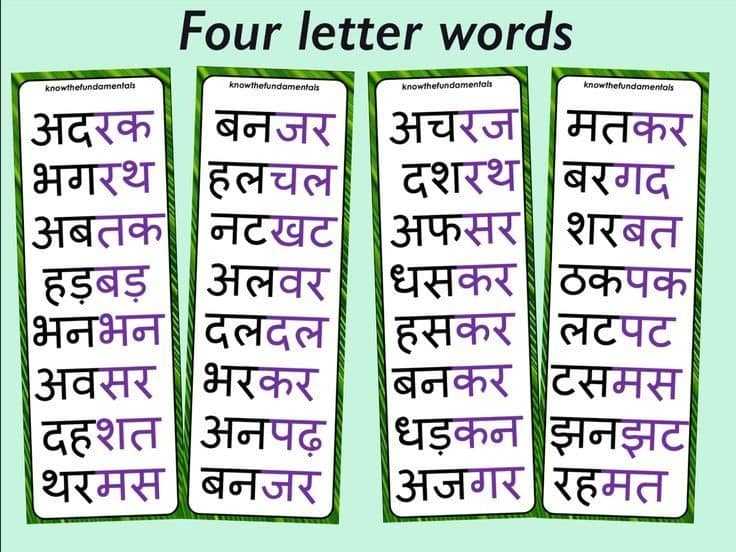 Four letter words
knowthefundamentals
अदरक
भगरथ
अबतक
हड़बड़
भनभन
अवसर
दहशत
थरमस
knowthefundamentals
बनजर
हलचल
नटखट
अलवर
दलदल
भरकर
अनपढ़
बनजर
knowthefundamentals
अचरज
दशरथ
अफसर
धसकर
हसकर
बनकर
धड़कन
अजगर
knowthefundamentals
मतकर
बरगद
शरबत
ठकपक
लटपट
टसमस
झनझट
रहमत